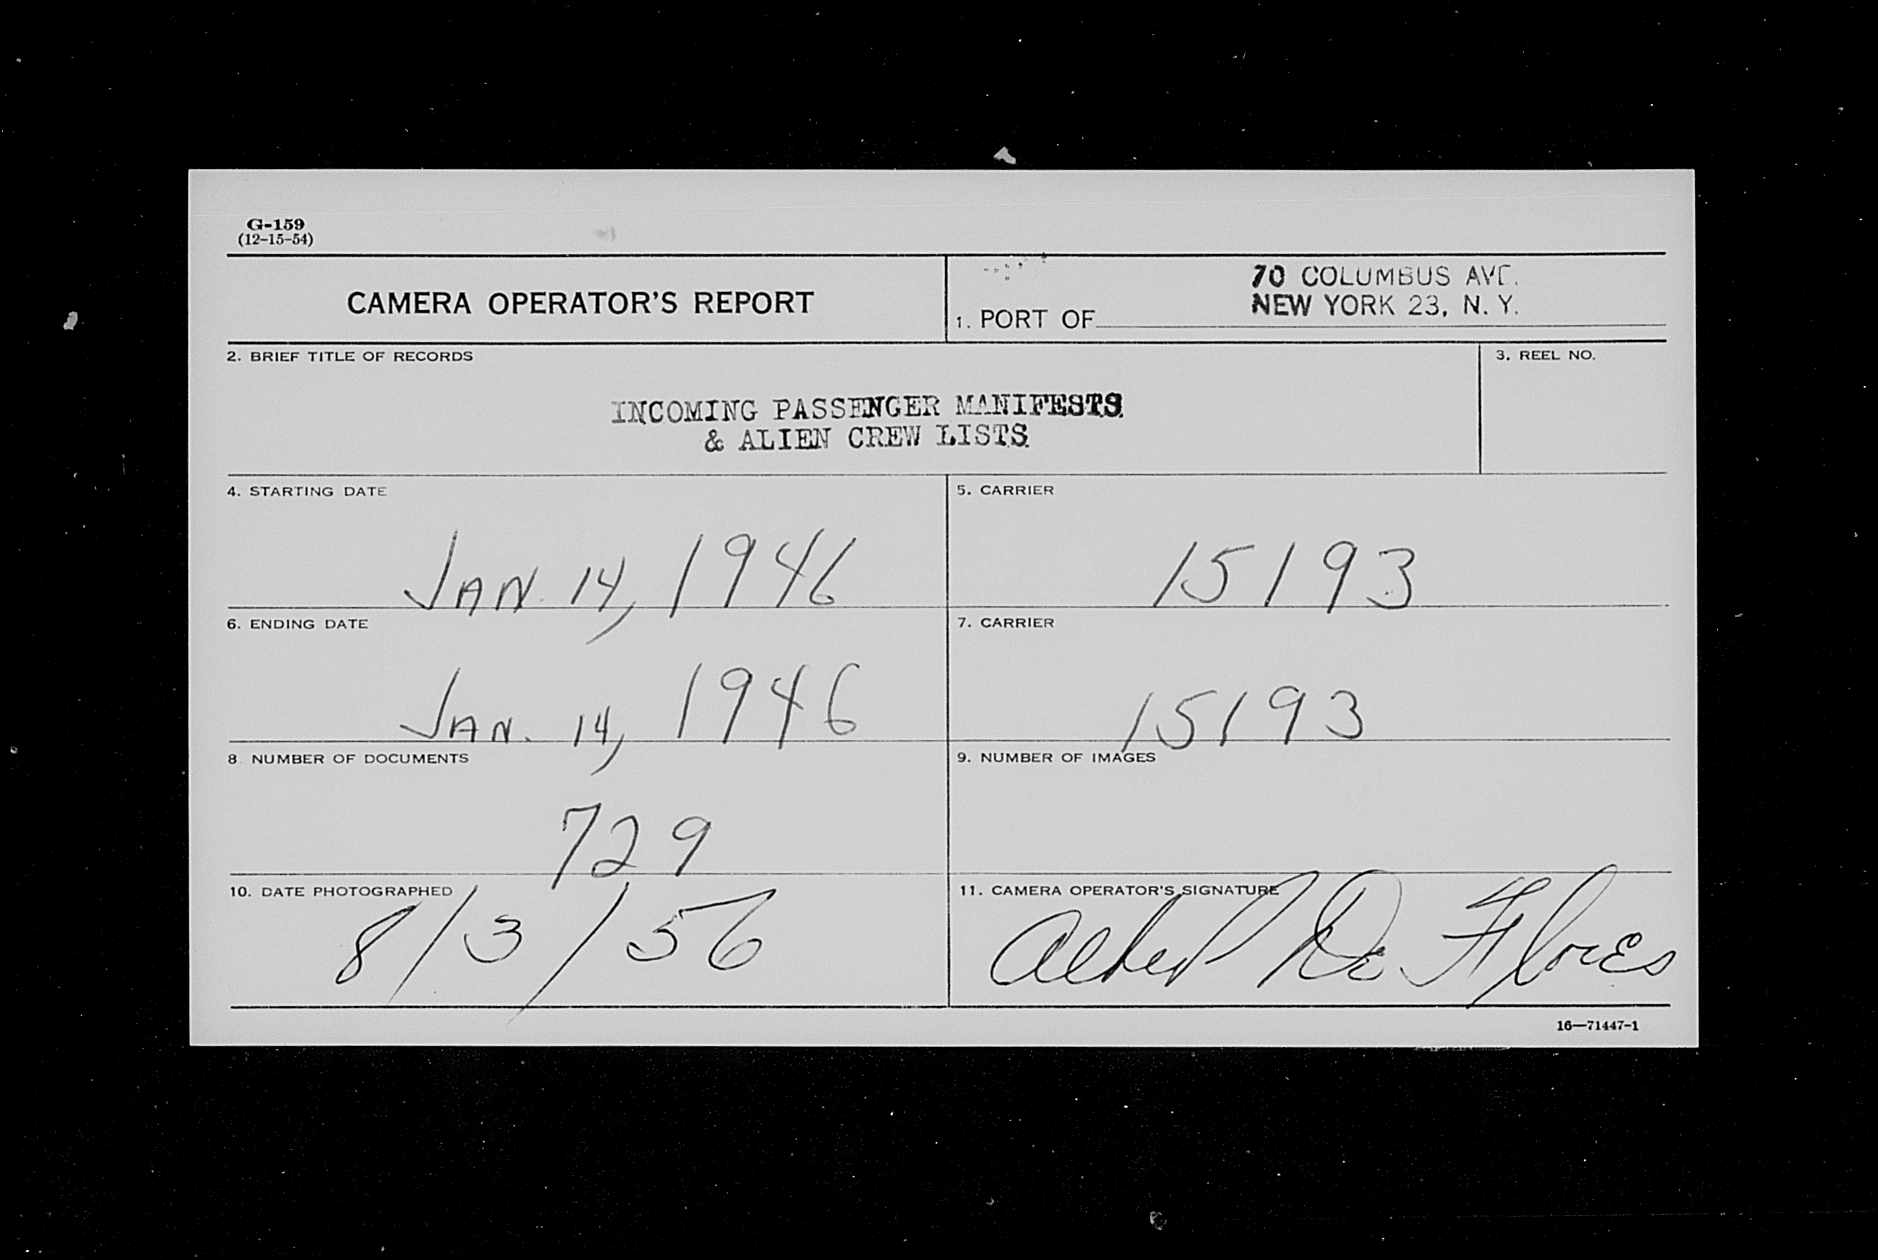 G-159
(12-15-54)
CAMERA OPERATOR'S REPORT
1. PORT OF
70 COLUMBUS AVE.
NEW YORK 23, N. Y.
2. BRIEF TITLE OF RECORDS
INCOMING PASSENGER MANIFESTS
& ALIEN CREW LISTS
3. REEL NO.
4. STARTING DATE
JAN. 14, 1946
5. CARRIER
15193
6. ENDING DATE
JAN. 14, 1946
7. CARRIER
15193
8. NUMBER OF DOCUMENTS
729
9. NUMBER OF IMAGES
10. DATE PHOTOGRAPHED
8/3/56
11. CAMERA OPERATOR'S SIGNATURE
Albert De Flores
16—71447-1